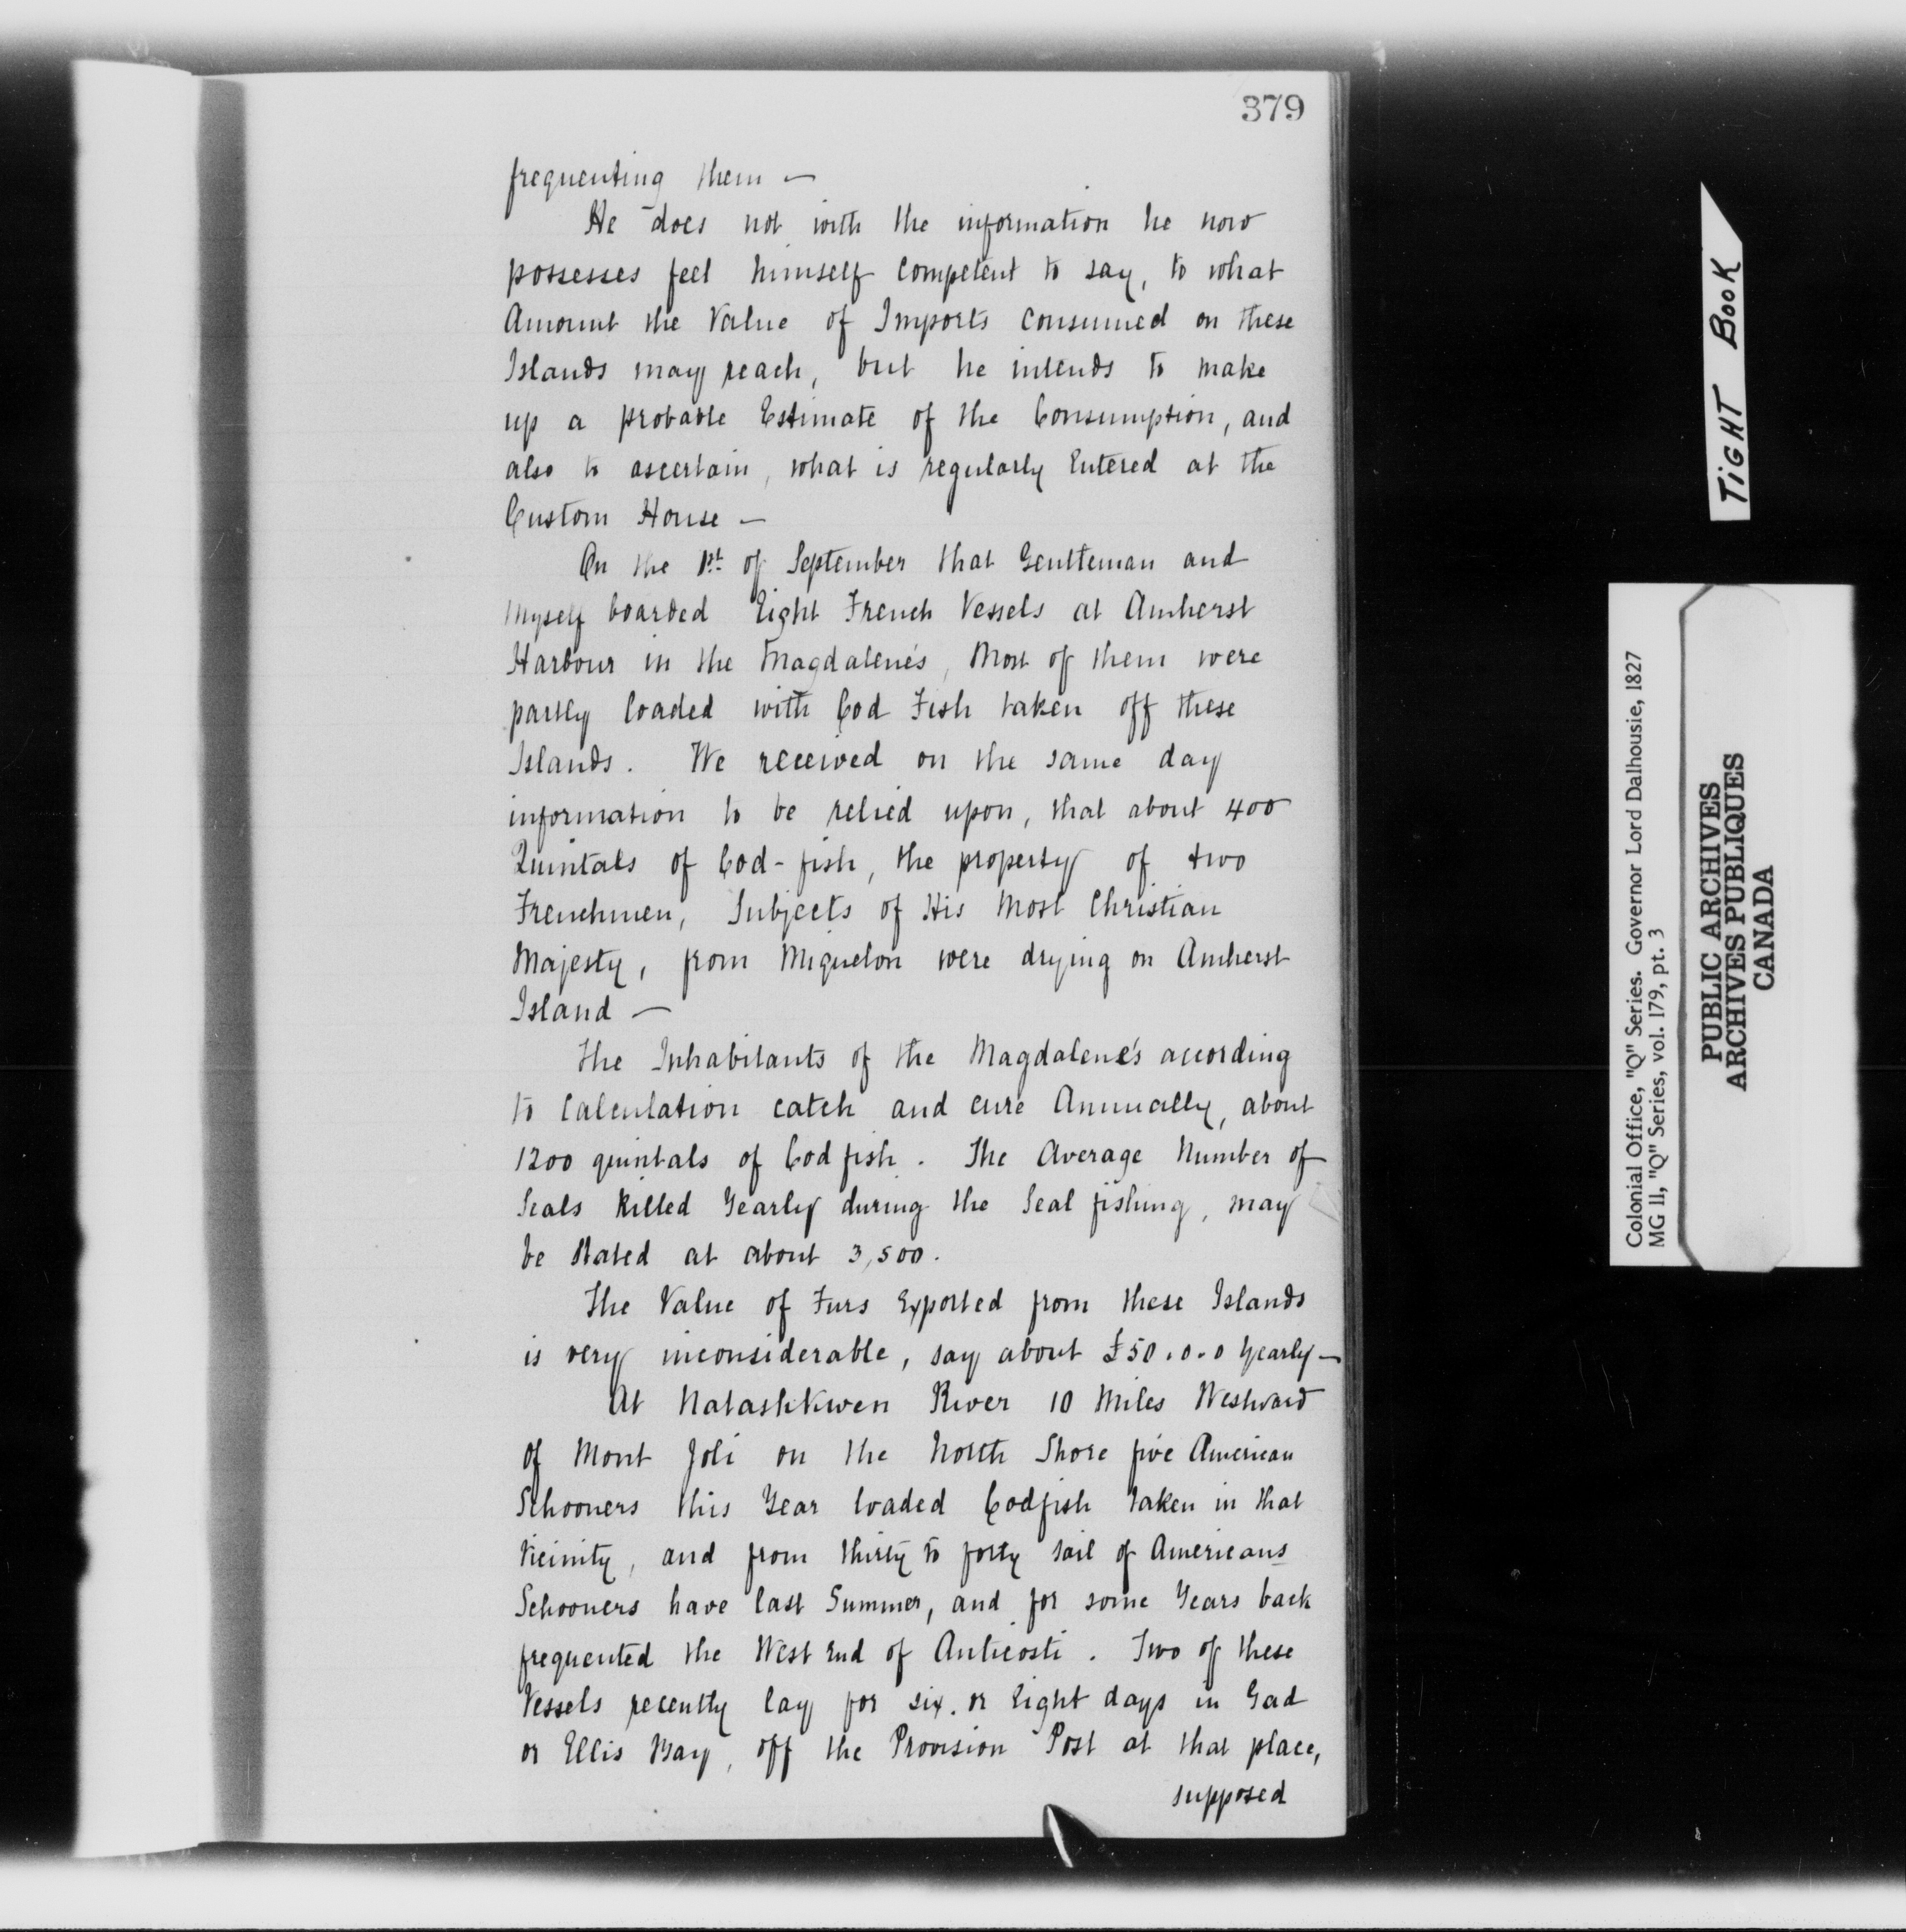 379
frequenting them —
He does not with the information he now
possesses feel himself competent to say, to what
Amount the Value of Imports consumed on these
Islands may reach, but he intends to make
up a probable Estimate of the Consumption, and
also to ascertain, what is regularly Entered at the
Custom House —
On the 1st of September that Gentleman and
Myself boarded Eight French Vessels at Amherst
Harbour in the Magdalene's, Most of them were
partly loaded with Cod Fish taken off these
Islands. We received on the same day
information to be relied upon, that about 400
Quintals of Cod-fish, the property of two
Frenchmen, Subjects of His Most Christian
Majesty, from Miquelon were drying on Amherst
Island —
The Inhabitants of the Magdalene's according
to Calculation catch and cure Annually, about
1200 quintals of Cod fish. The Average Number of
Seals Killed Yearly during the Seal fishing, may
be Stated at about 3,500.
The Value of Furs Exported from these Islands
is very inconsiderable, say about £50.0.0 Yearly —
At Natashkwen River 10 Miles Westward
of Mont Joli on the North Shore five American
Schooners this Year loaded Codfish taken in that
Vicinity, and from thirty to forty sail of Americans
Schooners have last Summer, and for some Years back
frequented the West End of Anticosti. Two of these
Vessels recently lay for six or Eight days in Gad
or Ellis Bay, off the Provision Post at that place,
supposed
TIGHT BOOK
Colonial Office, "Q" Series. Governor Lord Dalhousie, 1827
MG 11, "Q" Series, vol. 179, pt. 3
PUBLIC ARCHIVES
ARCHIVES PUBLIQUES
CANADA